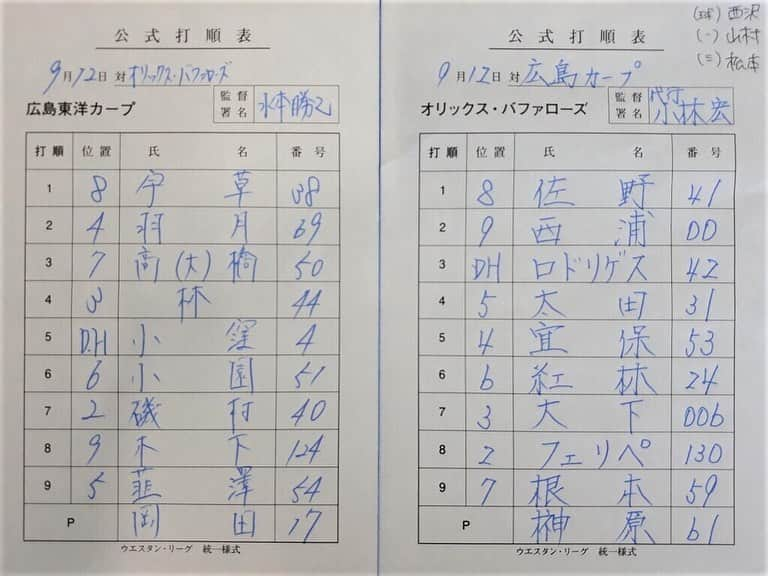 公式打順表
9月12日 対 オリックス・バファローズ
広島東洋カープ 監督署名 水本勝己
打順 位置 氏 名 番号
1 8 宇草 38
2 4 羽月 69
3 7 高(大)橋 50
4 3 林 44
5 D.H 小窪 4
6 6 小園 51
7 2 磯村 40
8 9 木下 124
9 5 韮澤 54
P 岡田 17
ウエスタン・リーグ 統一様式
(球) 西沢
(一) 山村
(三) 松本
公式打順表
9月12日 対 広島カープ
オリックス・バファローズ 監督署名 代行 小林宏
打順 位置 氏 名 番号
1 8 佐野 41
2 9 西浦 00
3 DH ロドリゲス 42
4 5 太田 31
5 4 宜保 53
6 6 紅林 24
7 3 大下 006
8 2 フェリペ 130
9 7 根本 59
P 榊原 61
ウエスタン・リーグ 統一様式